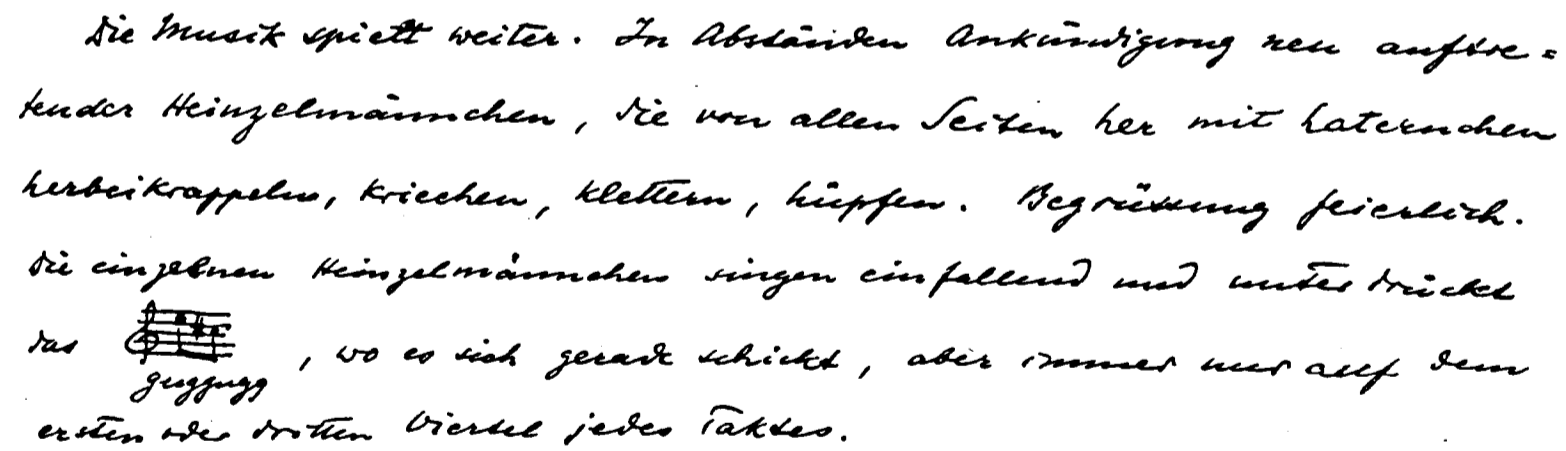 Die Musik spielt weiter. In Abständen Ankündigung neu auftre=
tender Heinzelmännchen, die von allen Seiten her mit Laternchen
herbeikrappeln, kriechen, klettern, hüpfen. Begrüssung feierlich.
Die einzelnen Heinzelmännchen singen einfallend und unterdrückt
das , wo es sich gerade schickt, aber immer nur auf dem
guggugg
ersten oder dritten Viertel jedes Taktes.